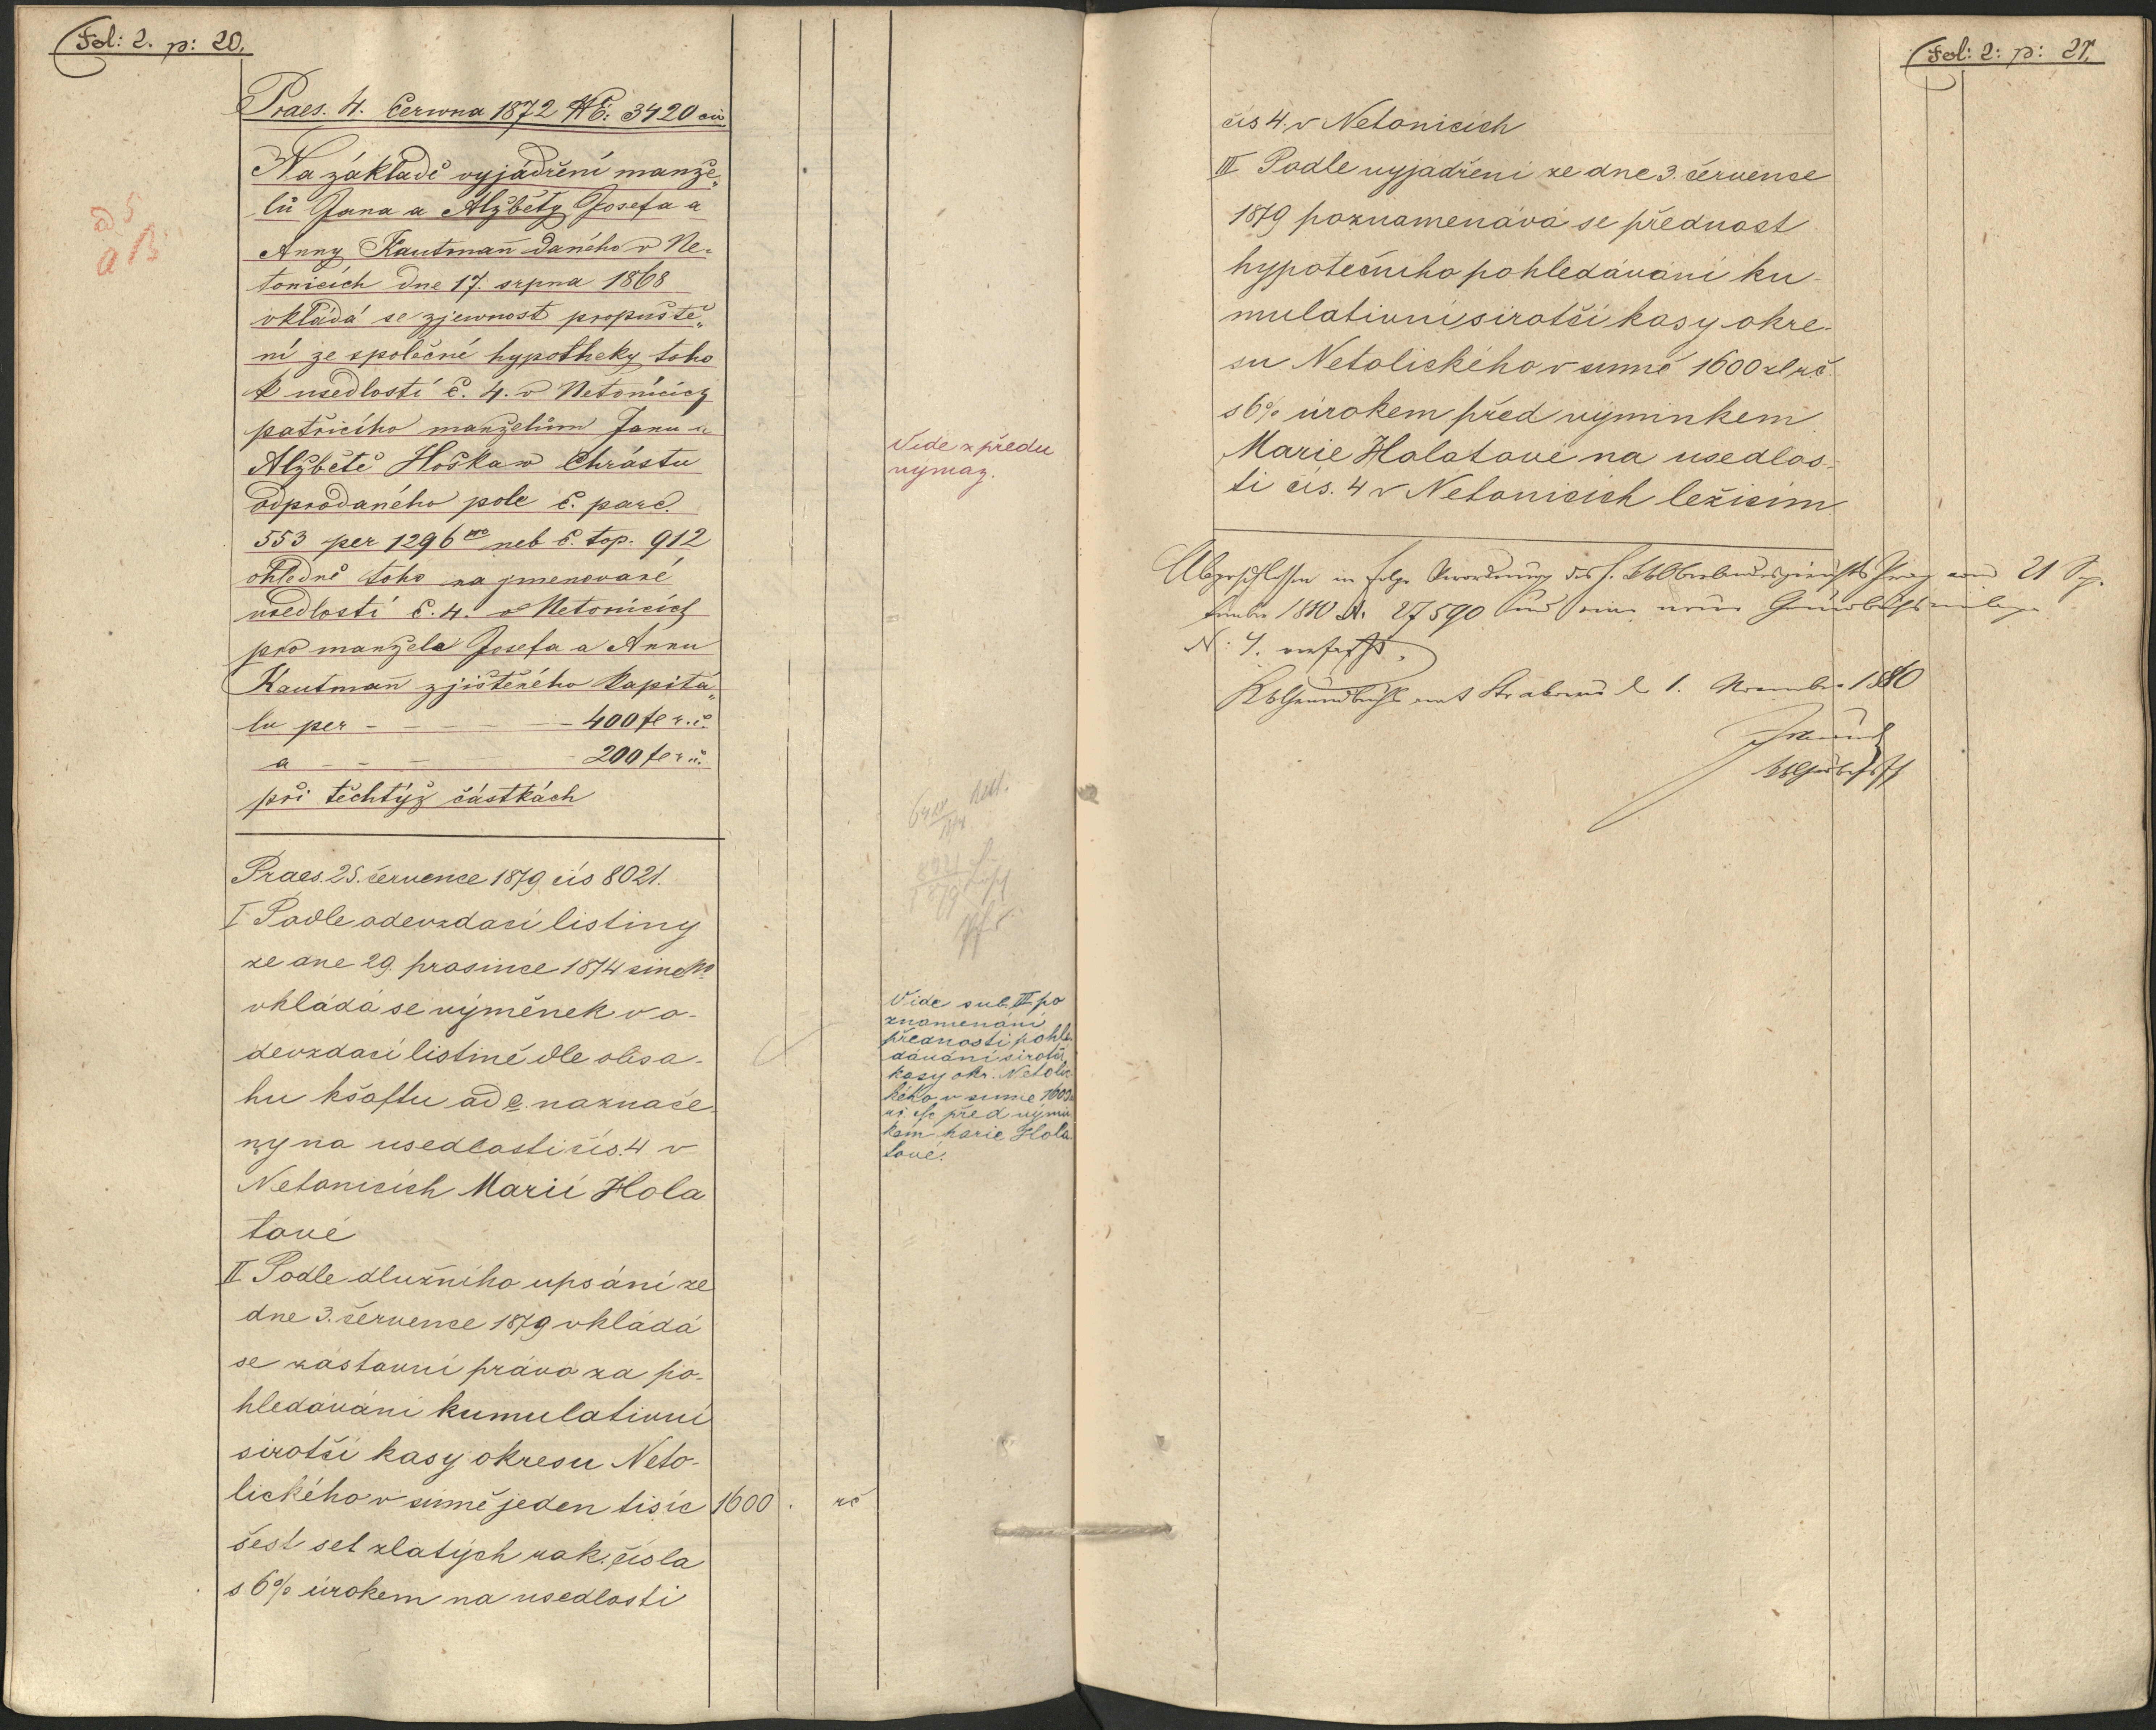 Fol: 2. p: 20.
Praes. 4. června 1872 NE: 3420 civ
Na základě vyjádření manže„
lů Jana a Alžběty Josefa a
Anny Kautmann daného v Ne-
tonicích dne 17. srpna 1868
vkládá se zjewnost propuště„
ní ze společné hypotheky toho
k usedlosti č. 4. v Netonicích
patřícího manželům Janu a
Alžbětě Hoška w Chrástu
odprodaného pole č. parc.
553 per 1296 neb č. top. 912
ohledně toho na jmenované
usedlosti č. 4. v Netonicích
pro manžela Josefa a Annu
Kautmann zjištěného kapitá„
lu per - - - - - 400 fe r. č.
a - - - - 200 fe r. č.
při těchtýž částkách
Vide z předu
vymaz.
Praes. 25. července 1879 čís 8021.
I Podle odevzdací listiny
ze dne 29. prosince 1874 sine No
vkládá se výměnek v o-
devzdací listině dle obsa-
hu kšaftu ad c. naznače-
ný na usedlosti čís. 4 v
Netonicích Marii Hola
tové
II Podle dlužního upsání ze
dne 3. července 1879 vkládá
se zástavní právo za po-
hledávání kumulativní
sirotčí kasy okresu Neto-
lického v sumě jeden tisíc 1600 . rč
šest set zlatých rak. čísla
s 6% úrokem na usedlosti
Vide sub III po
znamenání
přednosti pohle
dávání sirotčí
kasy okr. Netolic
kého v sumě 1600
před výmin
kem Marie Hola
tové.
Fol: 2: p: 21.
čís 4. v Netonicích
III Podle vyjádření ze dne 3. července
1879 poznamenává se přednost
hypotečního pohledávání ku-
mulativní sirotčí kasy okre-
su Netolického v sumě 1600 zl rč
s 6% úrokem před výminkem
Marie Holatové na usedlos-
ti čís. 4 v Netonicích ležícím
Abgeschlossen in Folge Verordnung des h. kk Oberlandesgerichts Prag vom 21 Sep-
tember 1880 N. 27590 und eine neue Grundbuchseinlage
N: 4. verfasst.
KK Grundbuchsamt Strakonic d 1. November 1880